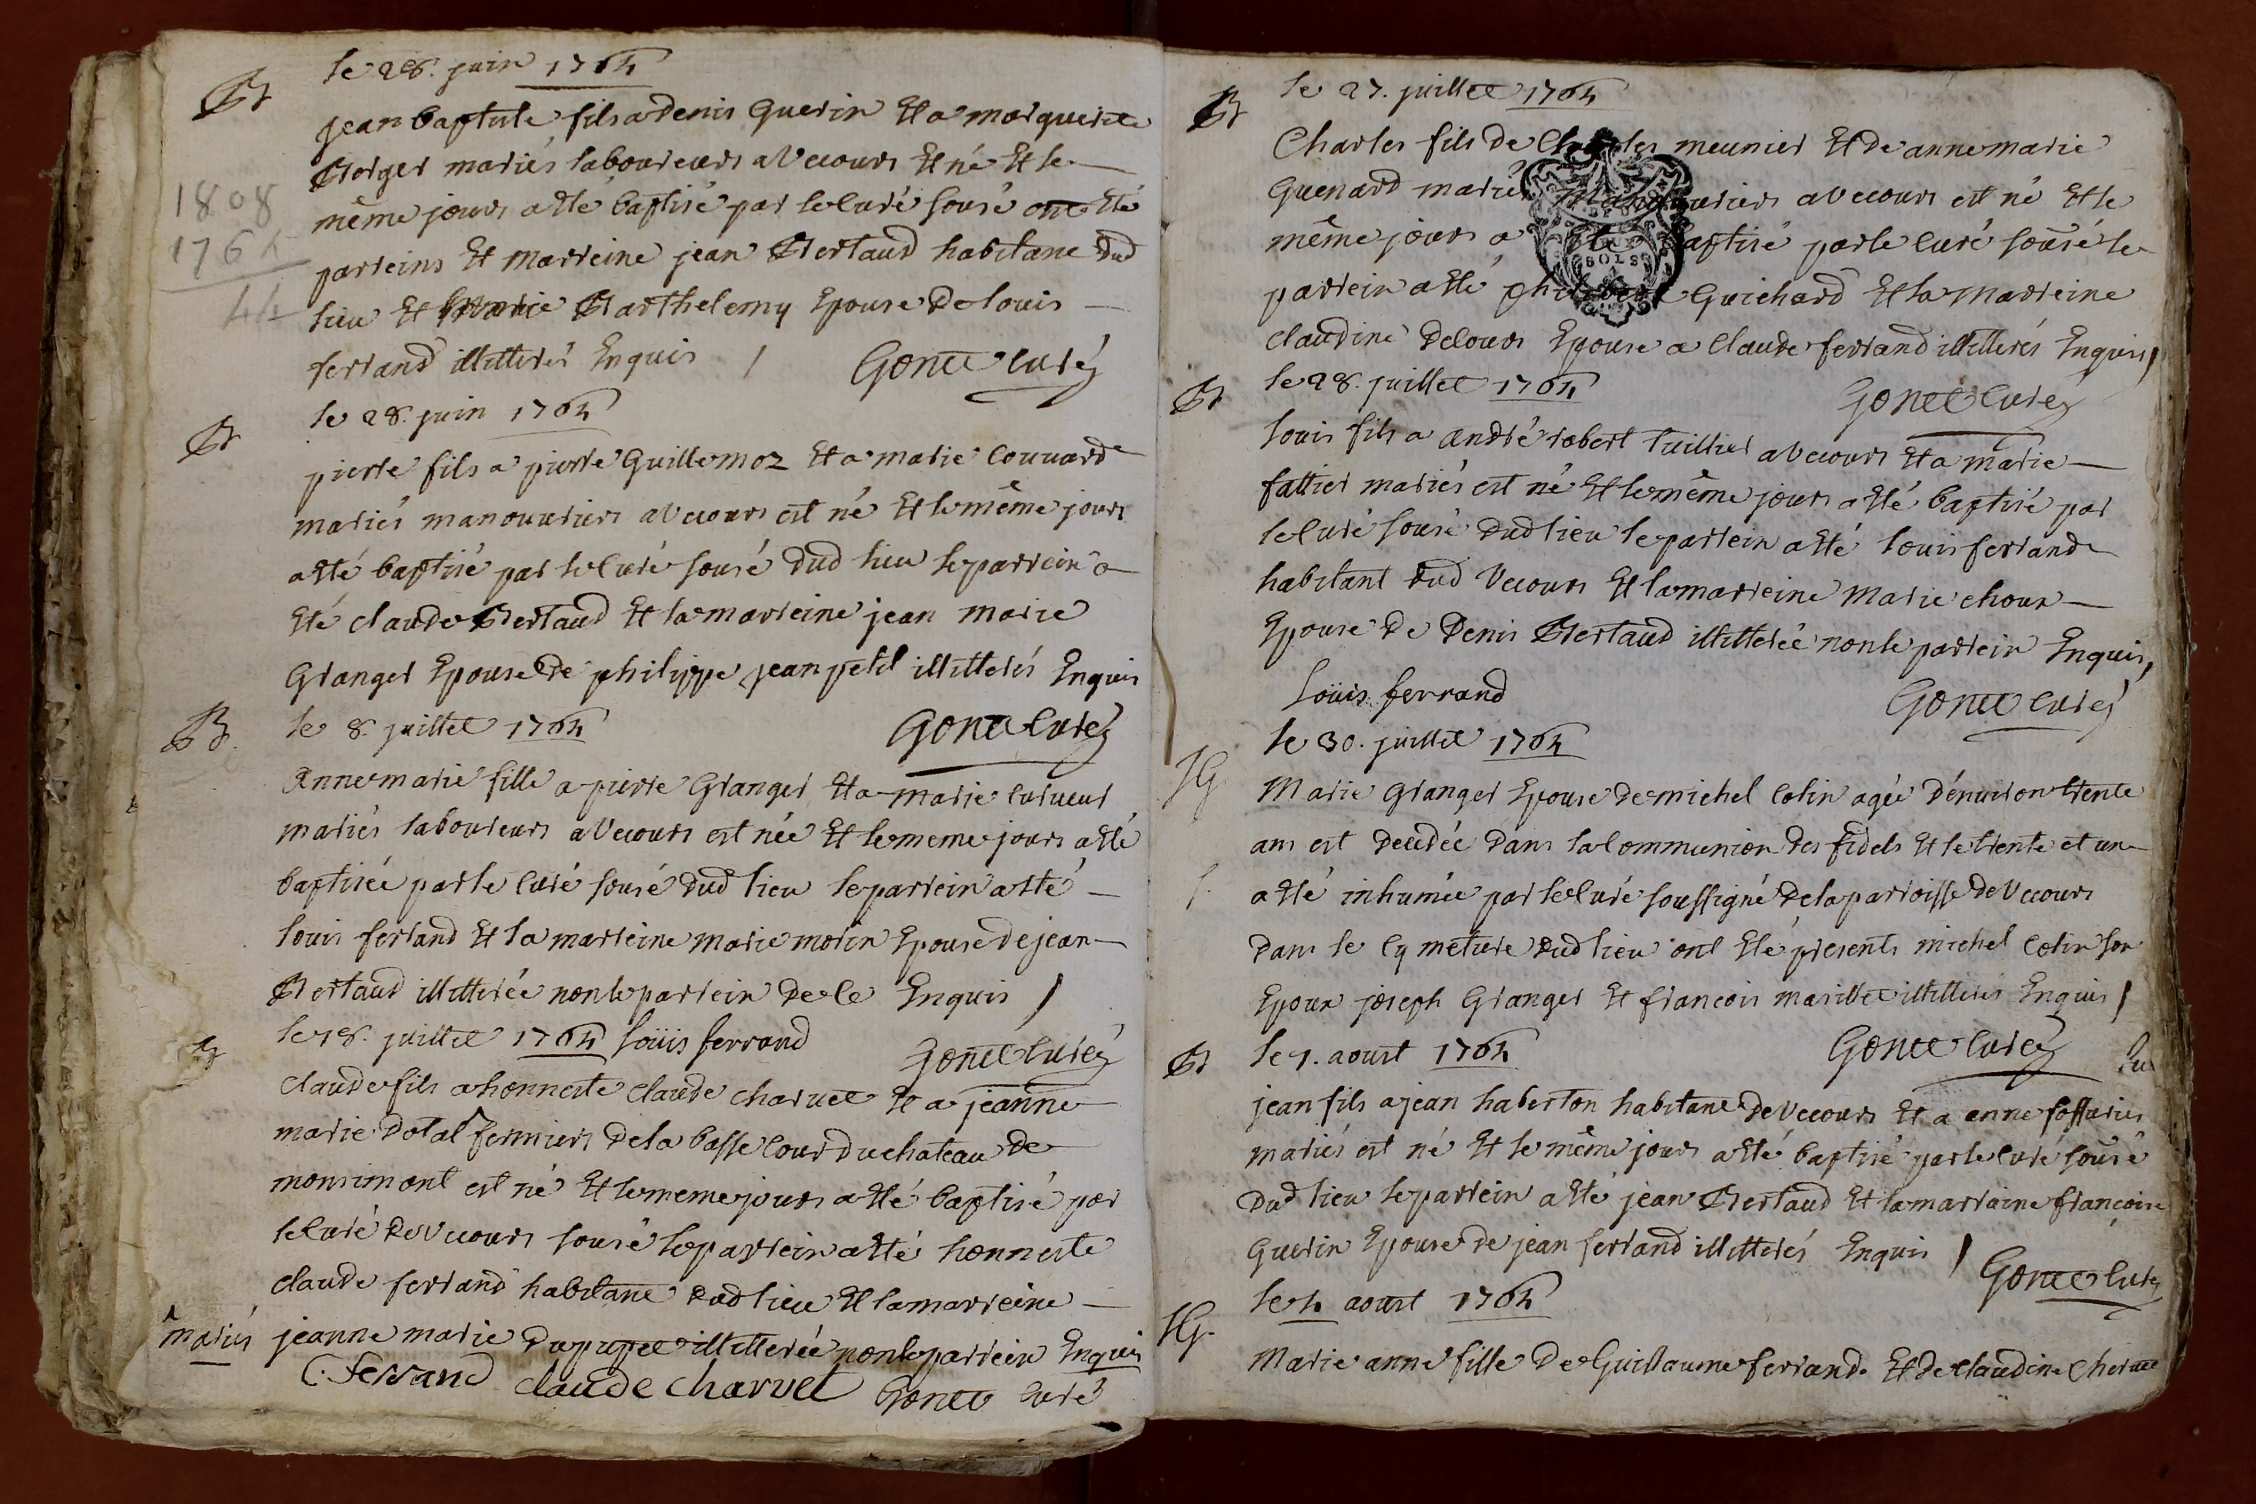 B
le 28. juin 1764
jean baptiste fils a denis Guerin Et a marguerite
Berger mariés laboureurs a Vecours Et né Et le
même jours a Eté baptisé par le Curé sousé ont Eté
parreins Et marreine jean Bertaud habitant dud
lieu Et marie Barthelemy Epouse De louis
ferrand illitterés Enquis / Gonet Curé
1808
1764
44
B
le 28. juin 1764
pierre fils a pierre Guillemoz Et a marie Couvard
mariés manouvriers a Vecours est né Et le même jours
a Eté baptisé par le Curé sousé dud lieu le parrein a
Eté claude Bertaud Et la marreine jean marie
Granger Epouse De philippe jean petit illitterés Enquis
B.
le 8. juillet 1764 Gonet Curé
Anne marie fille a pierre Granger Et a marie
mariés laboureurs a Vecours est née Et le meme jours a Eté
baptisée par le Curé sousé dud lieu le parrein a Eté
louis ferrand Et la marreine marie morin Epouse de jean
Bertaud illitterée non le parrein de ce Enquis /
B
le 18. juillet 1764 Loüis ferrand Gonet Curé
Claude fils a honneste Claude Charvet Et a jeanne
marie Dotal ^ fermiers De la basse Cour du chateau De
monsimont est né Et le meme jours a Eté baptisé par
le Curé De Vecours sousé le parrein a Eté honneste
claude ferrand habitant dud lieu Et la marreine
^ mariés
jeanne marie Dupupet illitterée non le parrein Enquis
C. Ferrand claude charvet Gonet Curé
B
le 27. juillet 1764
Charles fils De Charles meunier Et de anne marie
Guenard mariés manouvriers a Vecours est né Et le
même jours a Eté baptisé par le Curé sousé le
parrein a Eté Guichard Et la Marreine
claudine Decours Epouse a Claude ferrand illitterés Enquis /
SOLS
B
le 28. juillet 1764 Gonet Curé
louis fils a andré robert tuillier a Vecours Et a marie
fattier mariés est né Et le même jours a Eté baptisé par
le Curé sousé dud lieu le parrein a Eté louis ferrand
habitant dud Vecours Et la marreine Marie choux
Epouse De Denis Bertaud illitterée non le parrein Enquis,
Loüis ferrand Gonet Curé
le 30. juillet 1764
Marie Granger Epouse De michel Colin agée D'environ trente
ans est Decedée Dans la Communion des fidels Et le trente et un
a Eté inhumée par le Curé soussigné De la parroisse De Vecours
Dans le Cymetiere dud lieu ont Eté presents michel Colin son
Epoux joseph Granger Et françois marillet illitterés Enquis /
B
le 1. aoust 1764 Gonet Curé
jean fils a jean haberton habitant De Vecours Et a anne
mariés est né Et le même jours a Eté baptisé par le Curé sousé
Dud lieu le parrein a Eté jean Bertaud Et la marraine françoise
Guerin Epouse de jean ferrand illitterés Enquis / Gonet Curé
le 4 aoust 1764
Marie anne fille De Guillaume ferrand Et de claudine